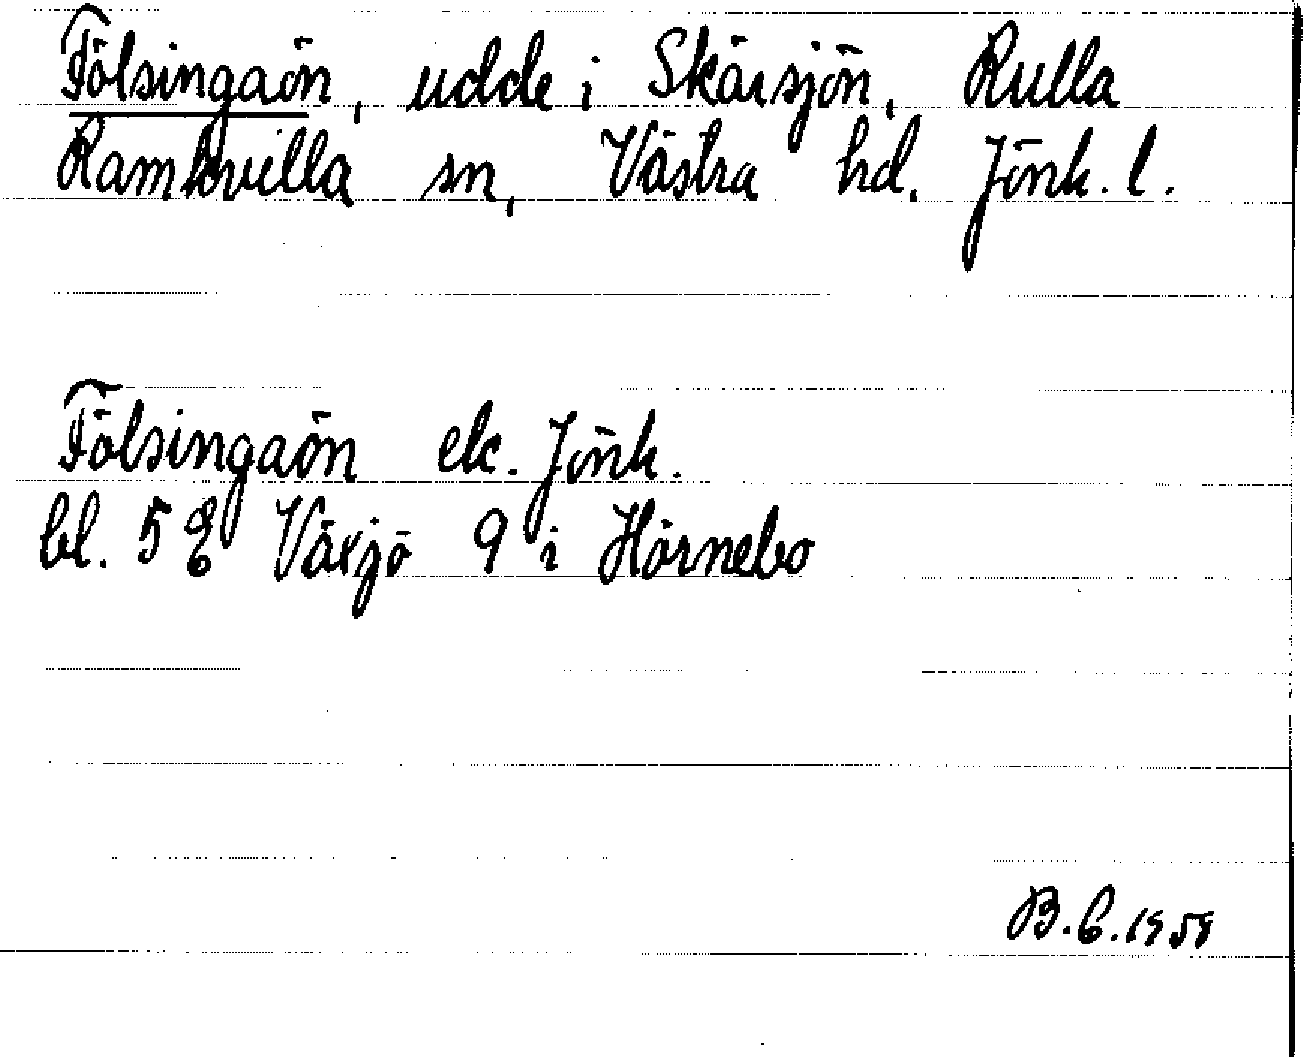 Fölsingaön, udde i Skärsjön, Rulla
Ramkvilla sn, Västra hd. Jönk. l.
Fölsingaön ek. Jönk.
bl. 5 E Växjö 9 i Hörnebo
B.E. 1958